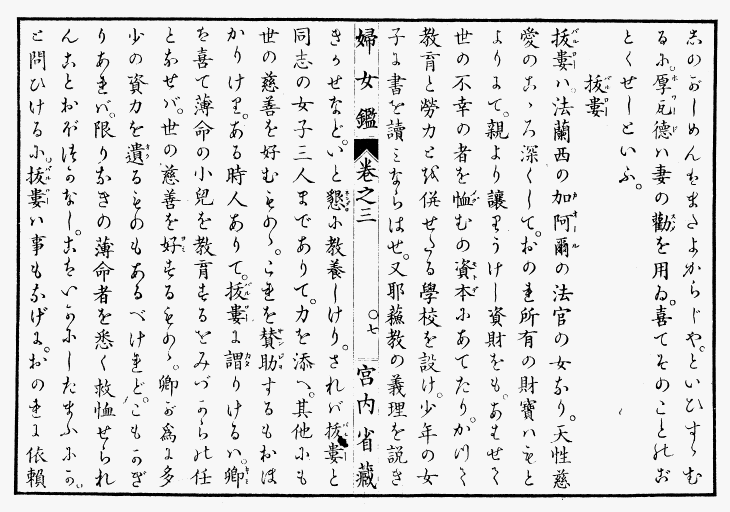 志のがしめんもまたよからじや。といひすゝむ
るに厚瓦德ハ妻の勸を用ゐ。喜てそのことのお
とくせしといふ。
抜婁
抜婁ハ。法蘭西の加阿爾の法官の女なり。天性慈
愛のこゝろ深くして。おのれ所有の財寶ハもと
よりにて。親より讓りうけし資財をも。あはせて
世の不幸の者を恤むの資本にあてたり。かつて
教育と勞力とを併せたる學校を設け。少年の女
子に書を讀ミならはせ。又耶蘇教の義理を説き
婦女鑑 卷之三 ○七 宮内省藏
きかせなど。いと懇に教養しけり。されバ抜婁と
同志の女子三人までありて。力を添へ。其他にも
世の慈善を好むもの。これを賛助するもおほ
かりけり。ある時人ありて。抜婁に謂りけるハ。卿
を喜て薄命の小兒を教育するをみづからの任
となせバ。世の慈善を好するものゝ。卿が爲に多
少の資力を遺るものもあるべけれど。こもかぎ
りあれバ。限りなきの薄命者を悉く救恤せられ
んことおぼつかなし。こをいかにしたまふにか。
と問ひけるに。抜婁ハ事もなげに。おのれに依頼